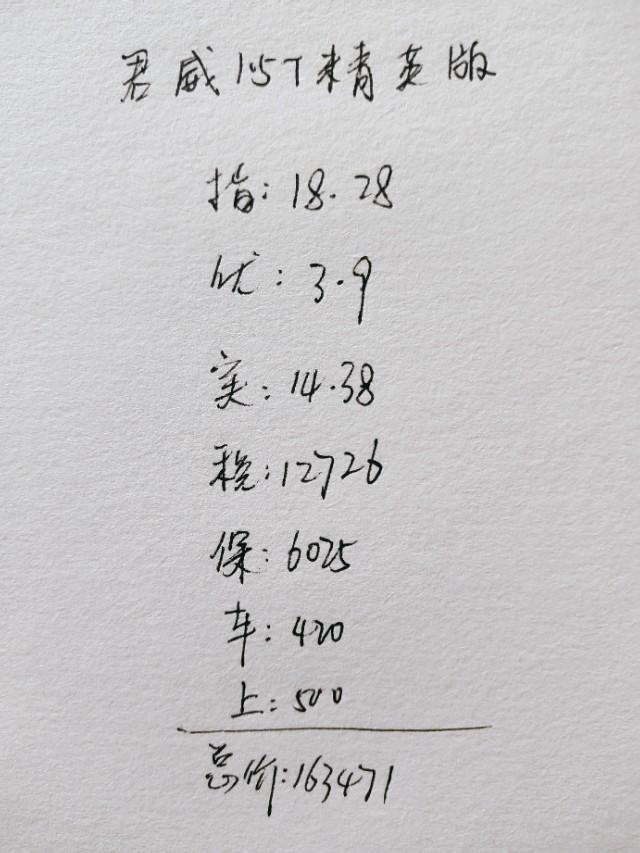 君威15T精英版
指:18.28
优:3.9
实:14.38
税:12726
保:6025
车:420
上:500
总价:163471